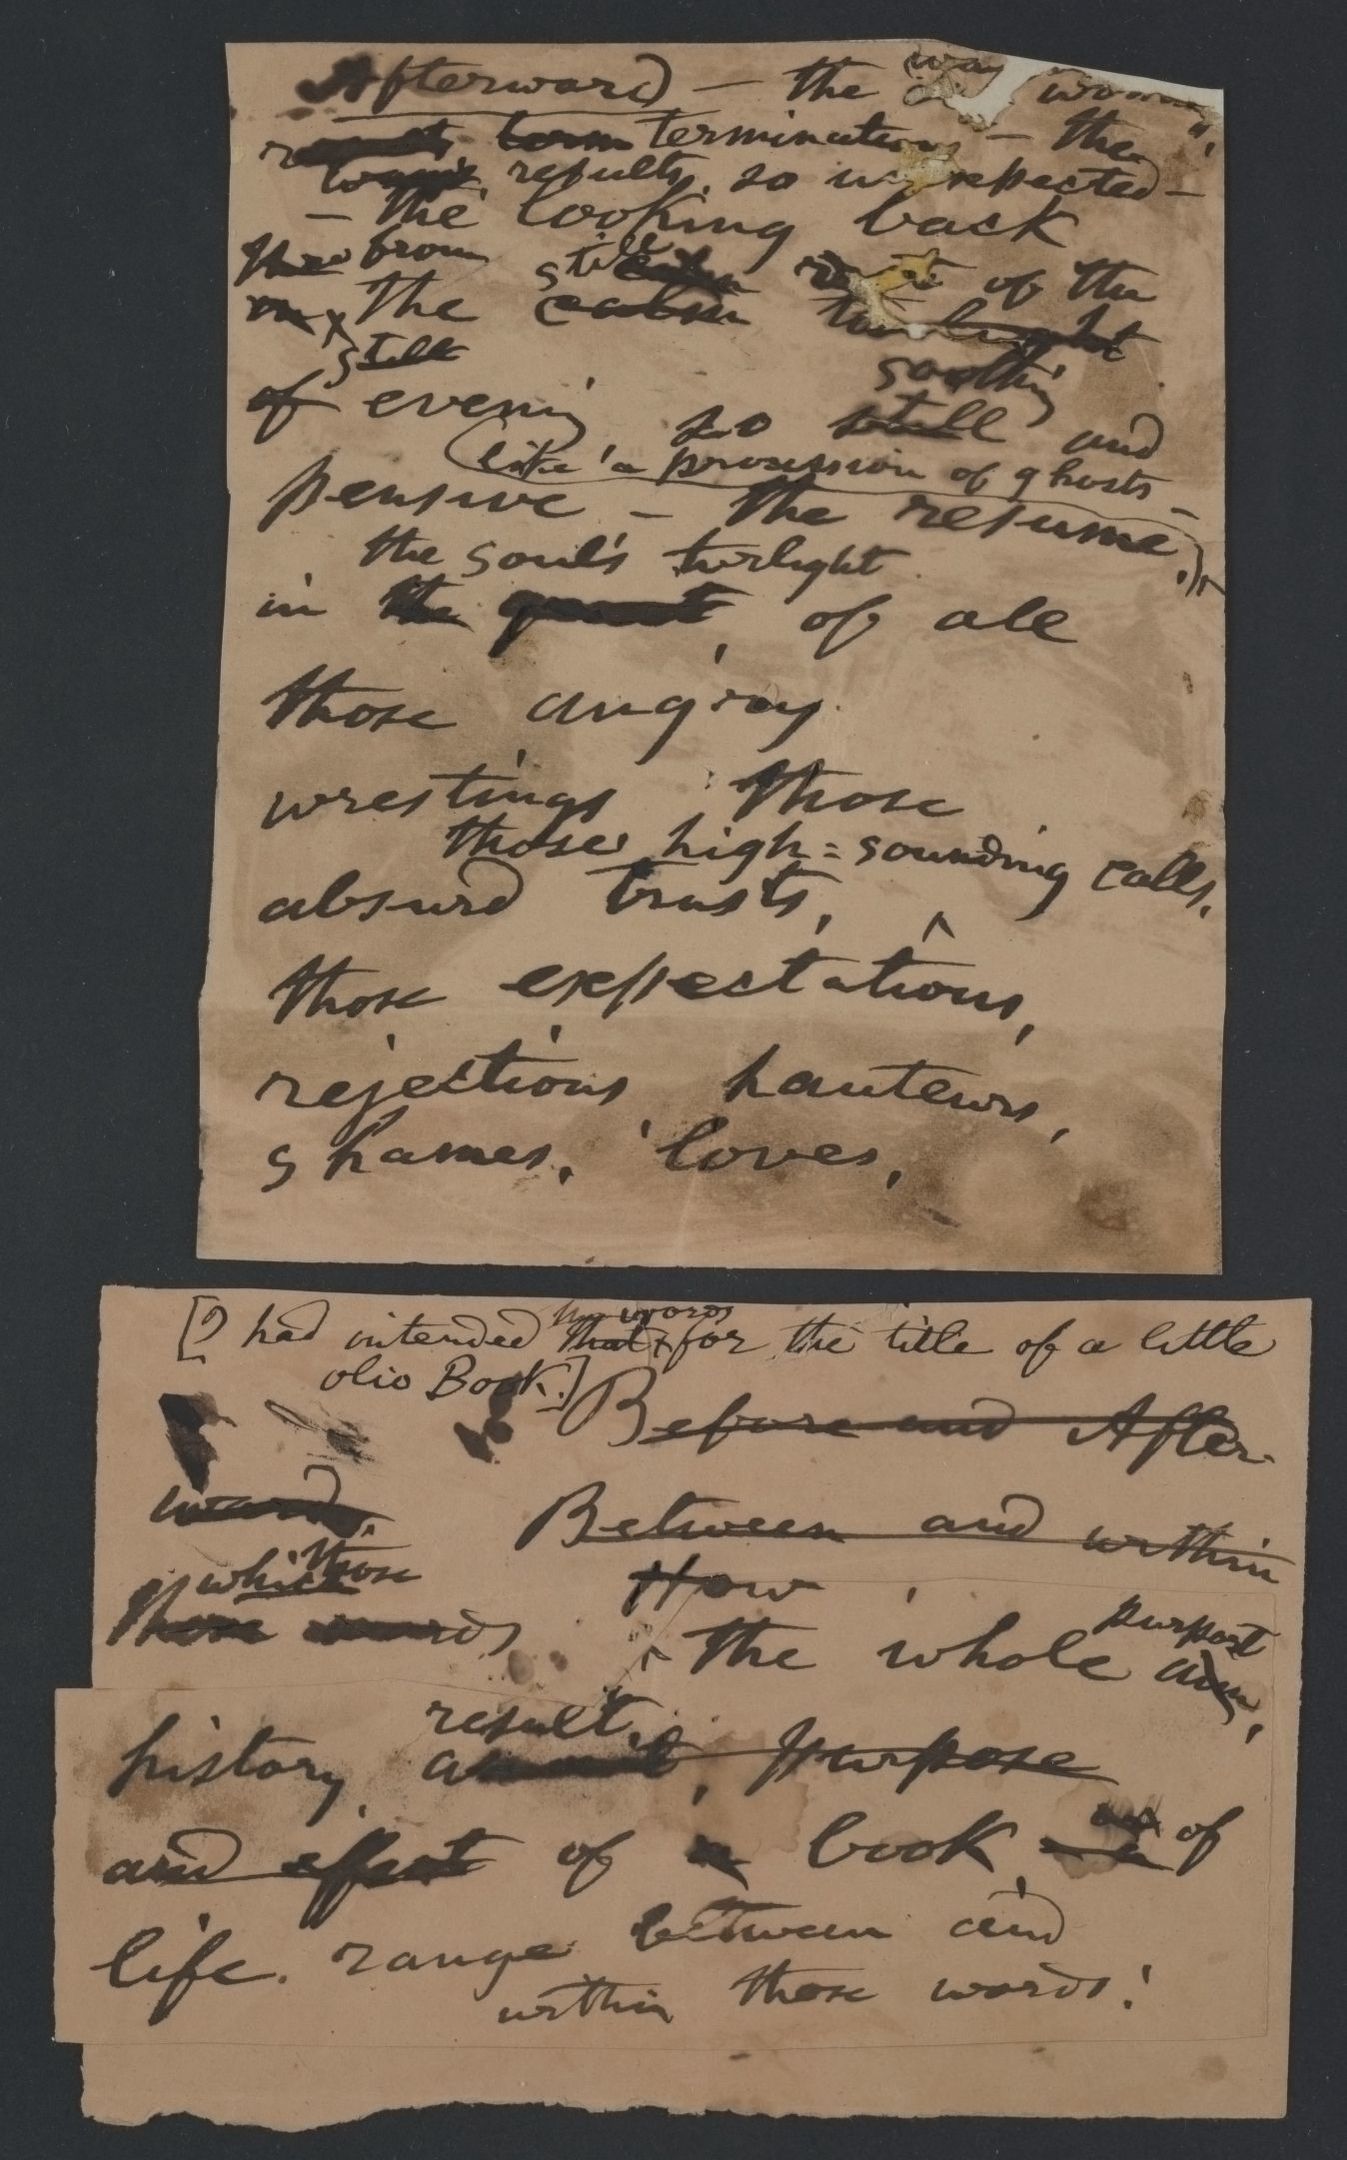 Afterward — the way
termination — the
results, so unexpected —
— the looking back
from still of the
the calm twilight
still
of evening soothing
so still and
(like a procession of ghosts —
pensive — the resume,)
the soul's twilight
in the of all
those angry
wrestings those
those high=sounding calls,
absurd trusts,
those expectations,
rejections, hauteurs,
shames, loves,
[I had intended that for the title of a little
words
olio Book.] Before and After-
ward, Between and within
which those
These words How
the whole aim,
purport
result,
history, purpose
and effect of a book of
life. range between and
within those words!